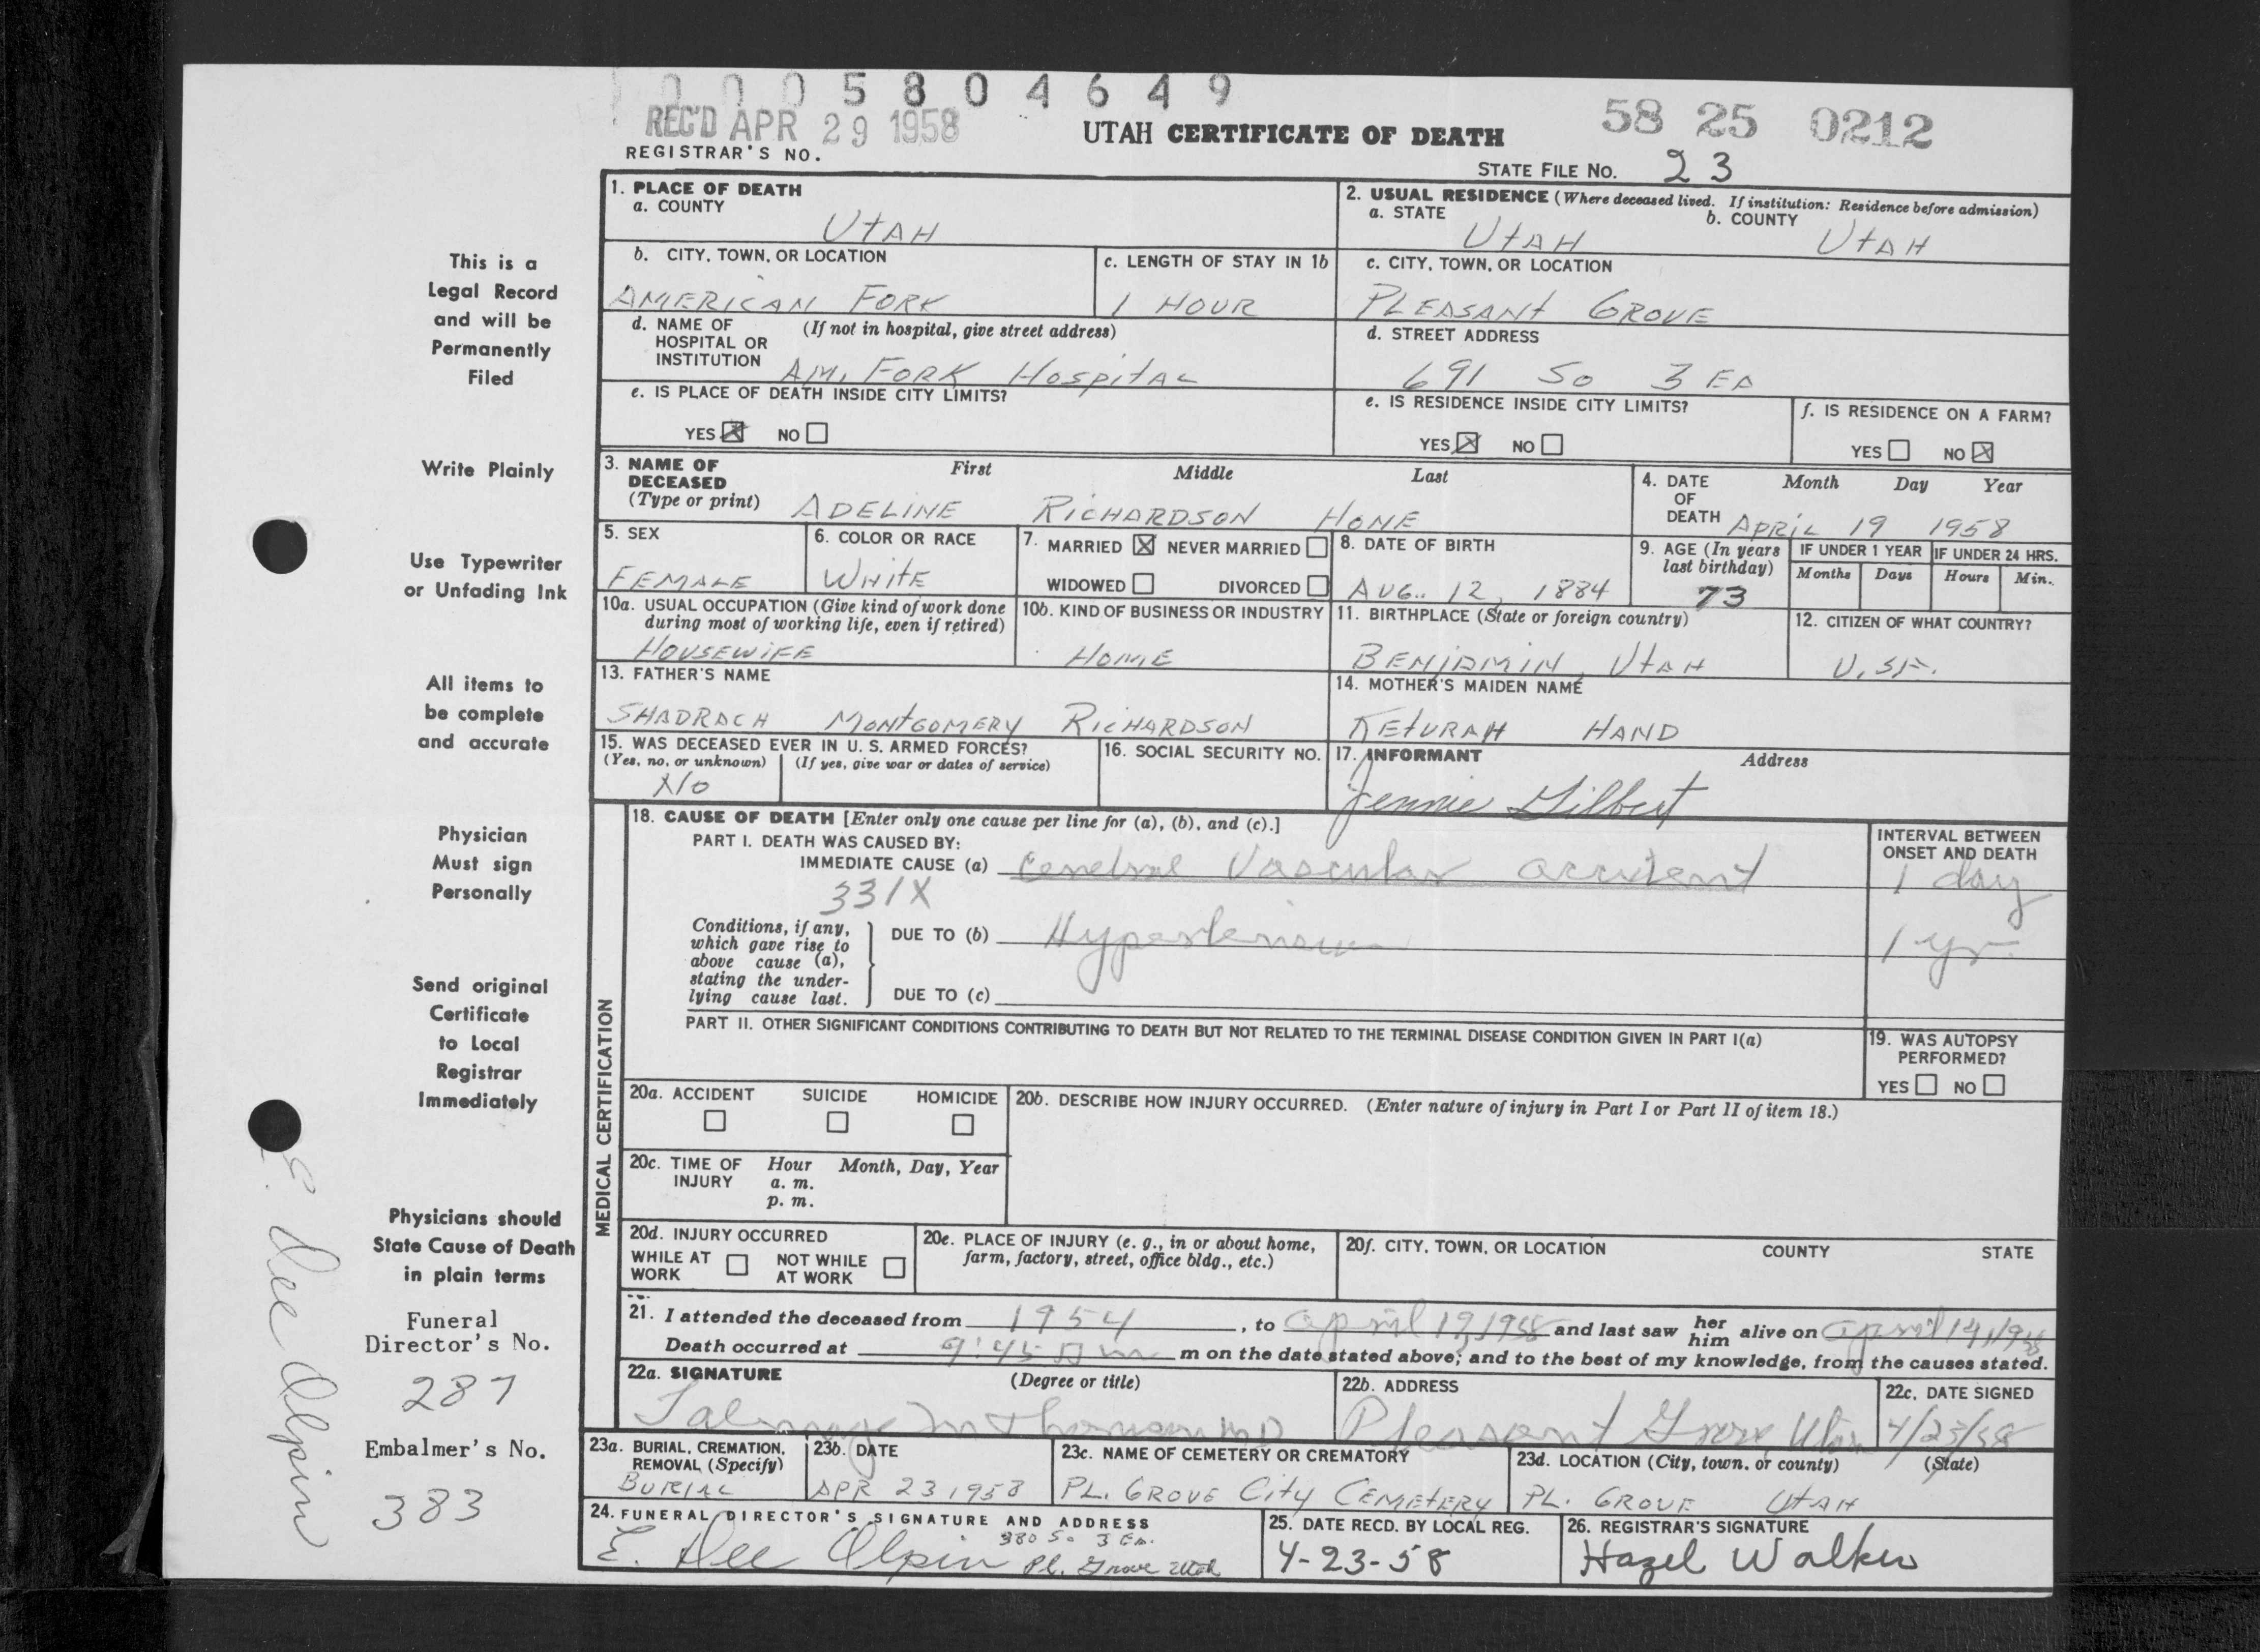 0005804649
REC'D APR 29 1958
UTAH CERTIFICATE OF DEATH
58 25 0212
REGISTRAR'S NO.
STATE FILE No. 23
1. PLACE OF DEATH
a. COUNTY
UtAH
2. USUAL RESIDENCE (Where deceased lived. If institution: Residence before admission)
a. STATE
UtAH
b. COUNTY
UtAH
b. CITY, TOWN, OR LOCATION
AMERICAN FORK
c. LENGTH OF STAY IN 1b
1 HOUR
c. CITY, TOWN, OR LOCATION
PLEASANt GROVE
d. NAME OF HOSPITAL OR INSTITUTION
(If not in hospital, give street address)
AM. FORK HospitAL
d. STREET ADDRESS
691 So 3 EA
e. IS PLACE OF DEATH INSIDE CITY LIMITS?
YES ☒ NO ☐
e. IS RESIDENCE INSIDE CITY LIMITS?
YES ☒ NO ☐
f. IS RESIDENCE ON A FARM?
YES ☐ NO ☒
3. NAME OF DECEASED
(Type or print)
First Middle Last
ADELINE RICHARDSON HONE
4. DATE OF DEATH
Month Day Year
APRIL 19 1958
5. SEX
FEMALE
6. COLOR OR RACE
WHitE
7. MARRIED ☒ NEVER MARRIED ☐
WIDOWED ☐ DIVORCED ☐
8. DATE OF BIRTH
AUG. 12, 1884
9. AGE (In years last birthday)
73
IF UNDER 1 YEAR
Months Days
IF UNDER 24 HRS.
Hours Min.
10a. USUAL OCCUPATION (Give kind of work done during most of working life, even if retired)
HOUSEWIFE
10b. KIND OF BUSINESS OR INDUSTRY
HOME
11. BIRTHPLACE (State or foreign country)
BENJAMIN, UtAH
12. CITIZEN OF WHAT COUNTRY?
U.SA.
13. FATHER'S NAME
SHADRACH MONtGOMERY RICHARDSON
14. MOTHER'S MAIDEN NAME
KEtURAH HAND
15. WAS DECEASED EVER IN U. S. ARMED FORCES?
(Yes, no, or unknown) (If yes, give war or dates of service)
No
16. SOCIAL SECURITY NO.
17. INFORMANT
Address
Jennie Gilbert
MEDICAL CERTIFICATION
18. CAUSE OF DEATH [Enter only one cause per line for (a), (b), and (c).]
PART I. DEATH WAS CAUSED BY:
IMMEDIATE CAUSE (a) Cerebral Vascular accident
331X
INTERVAL BETWEEN ONSET AND DEATH
1 day
Conditions, if any, which gave rise to above cause (a), stating the underlying cause last.
DUE TO (b) Hypertension
1 yr.
DUE TO (c)
PART II. OTHER SIGNIFICANT CONDITIONS CONTRIBUTING TO DEATH BUT NOT RELATED TO THE TERMINAL DISEASE CONDITION GIVEN IN PART I(a)
19. WAS AUTOPSY PERFORMED?
YES ☐ NO ☐
20a. ACCIDENT SUICIDE HOMICIDE
☐ ☐ ☐
20b. DESCRIBE HOW INJURY OCCURRED. (Enter nature of injury in Part I or Part II of item 18.)
20c. TIME OF INJURY
Hour Month, Day, Year
a. m.
p. m.
20d. INJURY OCCURRED
WHILE AT WORK ☐ NOT WHILE AT WORK ☐
20e. PLACE OF INJURY (e. g., in or about home, farm, factory, street, office bldg., etc.)
20f. CITY, TOWN, OR LOCATION COUNTY STATE
21. I attended the deceased from 1954, to April 19, 1958 and last saw her him alive on April 19, 1958
Death occurred at 9:45 m on the date stated above; and to the best of my knowledge, from the causes stated.
22a. SIGNATURE
(Degree or title)
22b. ADDRESS
Pleasant Grove, Utah
22c. DATE SIGNED
4/23/58
23a. BURIAL, CREMATION, REMOVAL (Specify)
BURIAL
23b. DATE
APR 23 1958
23c. NAME OF CEMETERY OR CREMATORY
PL. GROVE City CEMEtERY
23d. LOCATION (City, town, or county) (State)
PL. GROVE UtAH
24. FUNERAL DIRECTOR'S SIGNATURE AND ADDRESS
E. Dee Olpin 380 S. 3 Ea.
Pl. Grove Utah
25. DATE RECD. BY LOCAL REG.
4-23-58
26. REGISTRAR'S SIGNATURE
Hazel Walker
This is a
Legal Record
and will be
Permanently
Filed
Write Plainly
Use Typewriter
or Unfading Ink
All items to
be complete
and accurate
Physician
Must sign
Personally
Send original
Certificate
to Local
Registrar
Immediately
Physicians should
State Cause of Death
in plain terms
Funeral
Director's No.
287
Embalmer's No.
383
E. Dee Olpin